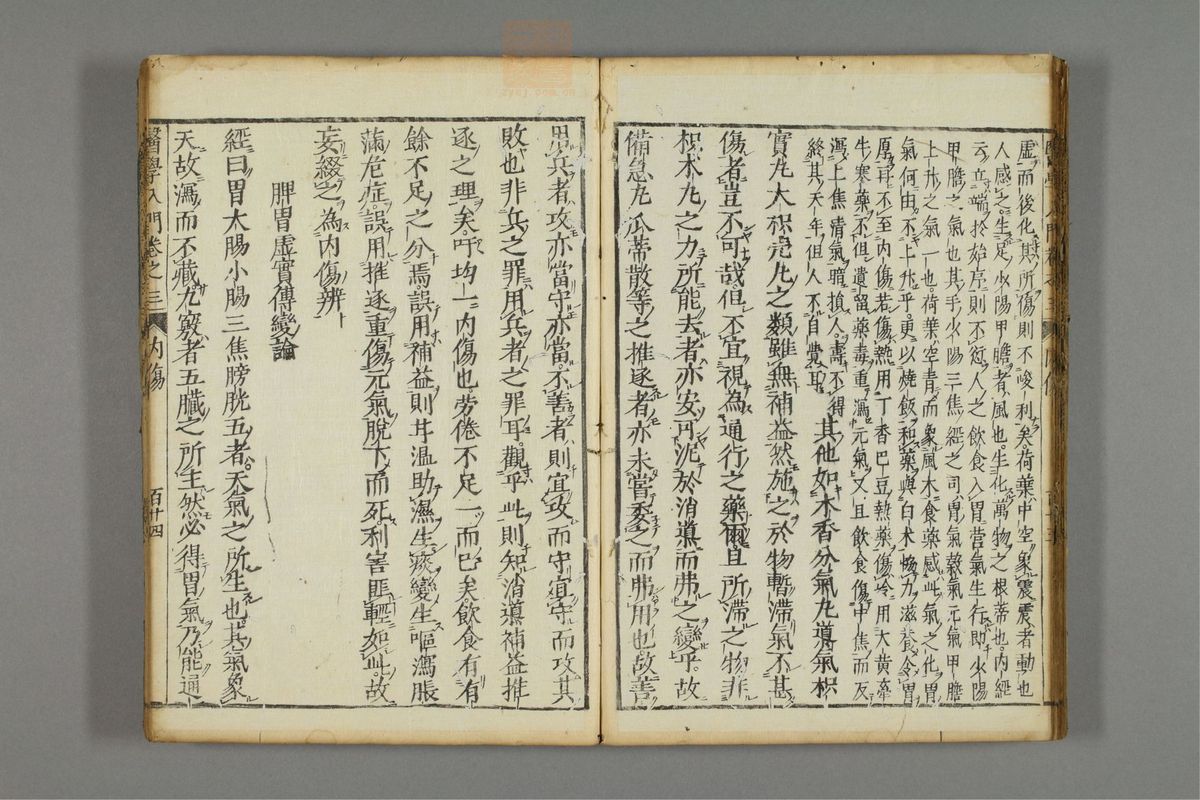 虛而後化其所傷則不峻利矣荷葉中空象震震者動也
人感之生足少陽甲膽者風也生化萬物之根蒂也內經
云立端於始序則不愆人之飲食入胃營氣生行助少陽
甲膽之氣也其手少陽三焦經之司胃氣穀氣元氣甲膽
上升之氣一也荷葉空青而象風木食藥感此氣之化胃
氣何由不上升乎更以燒飯和藥與白朮協力滋養令胃
厚再不至內傷若傷熱用丁香巴豆熱藥傷冷用大黃牽
牛寒藥不但遺留藥毒重瀉元氣又且飲食傷中焦而反
瀉上焦清氣暗損人壽不得
終其天年但人不自覺耳其他如木香分氣丸導氣枳
實丸大枳壳丸之類雖無補益然施之於物暫滯氣不甚
傷者豈不可哉但不宜視為通行之藥爾且所滯之物非
枳朮丸之力所能去者亦安可泥於消導而弗之變乎故
備急丸瓜蒂散等之推逐者亦未嘗委之而弗用也故善
用兵者攻亦當守亦當不善者則宜攻而守宜守而攻其
敗也非兵之罪用兵者之罪耳觀乎此則知消導補益推
逐之理矣吁均一內傷也勞倦不足一而巳矣飲食有有
餘不足之分焉誤用補益則甘溫助濕生痰變生嘔瀉脹
滿危症誤用推逐重傷元氣脫下而死利害匪輕如此故
妄綴之為內傷辨
脾胃虛實傳變論
經曰胃大腸小腸三焦膀胱五者天氣之所生也其氣象
天故瀉而不藏九竅者五臟之所主然必得胃氣乃能通
醫學入門卷之三 內傷 百十四